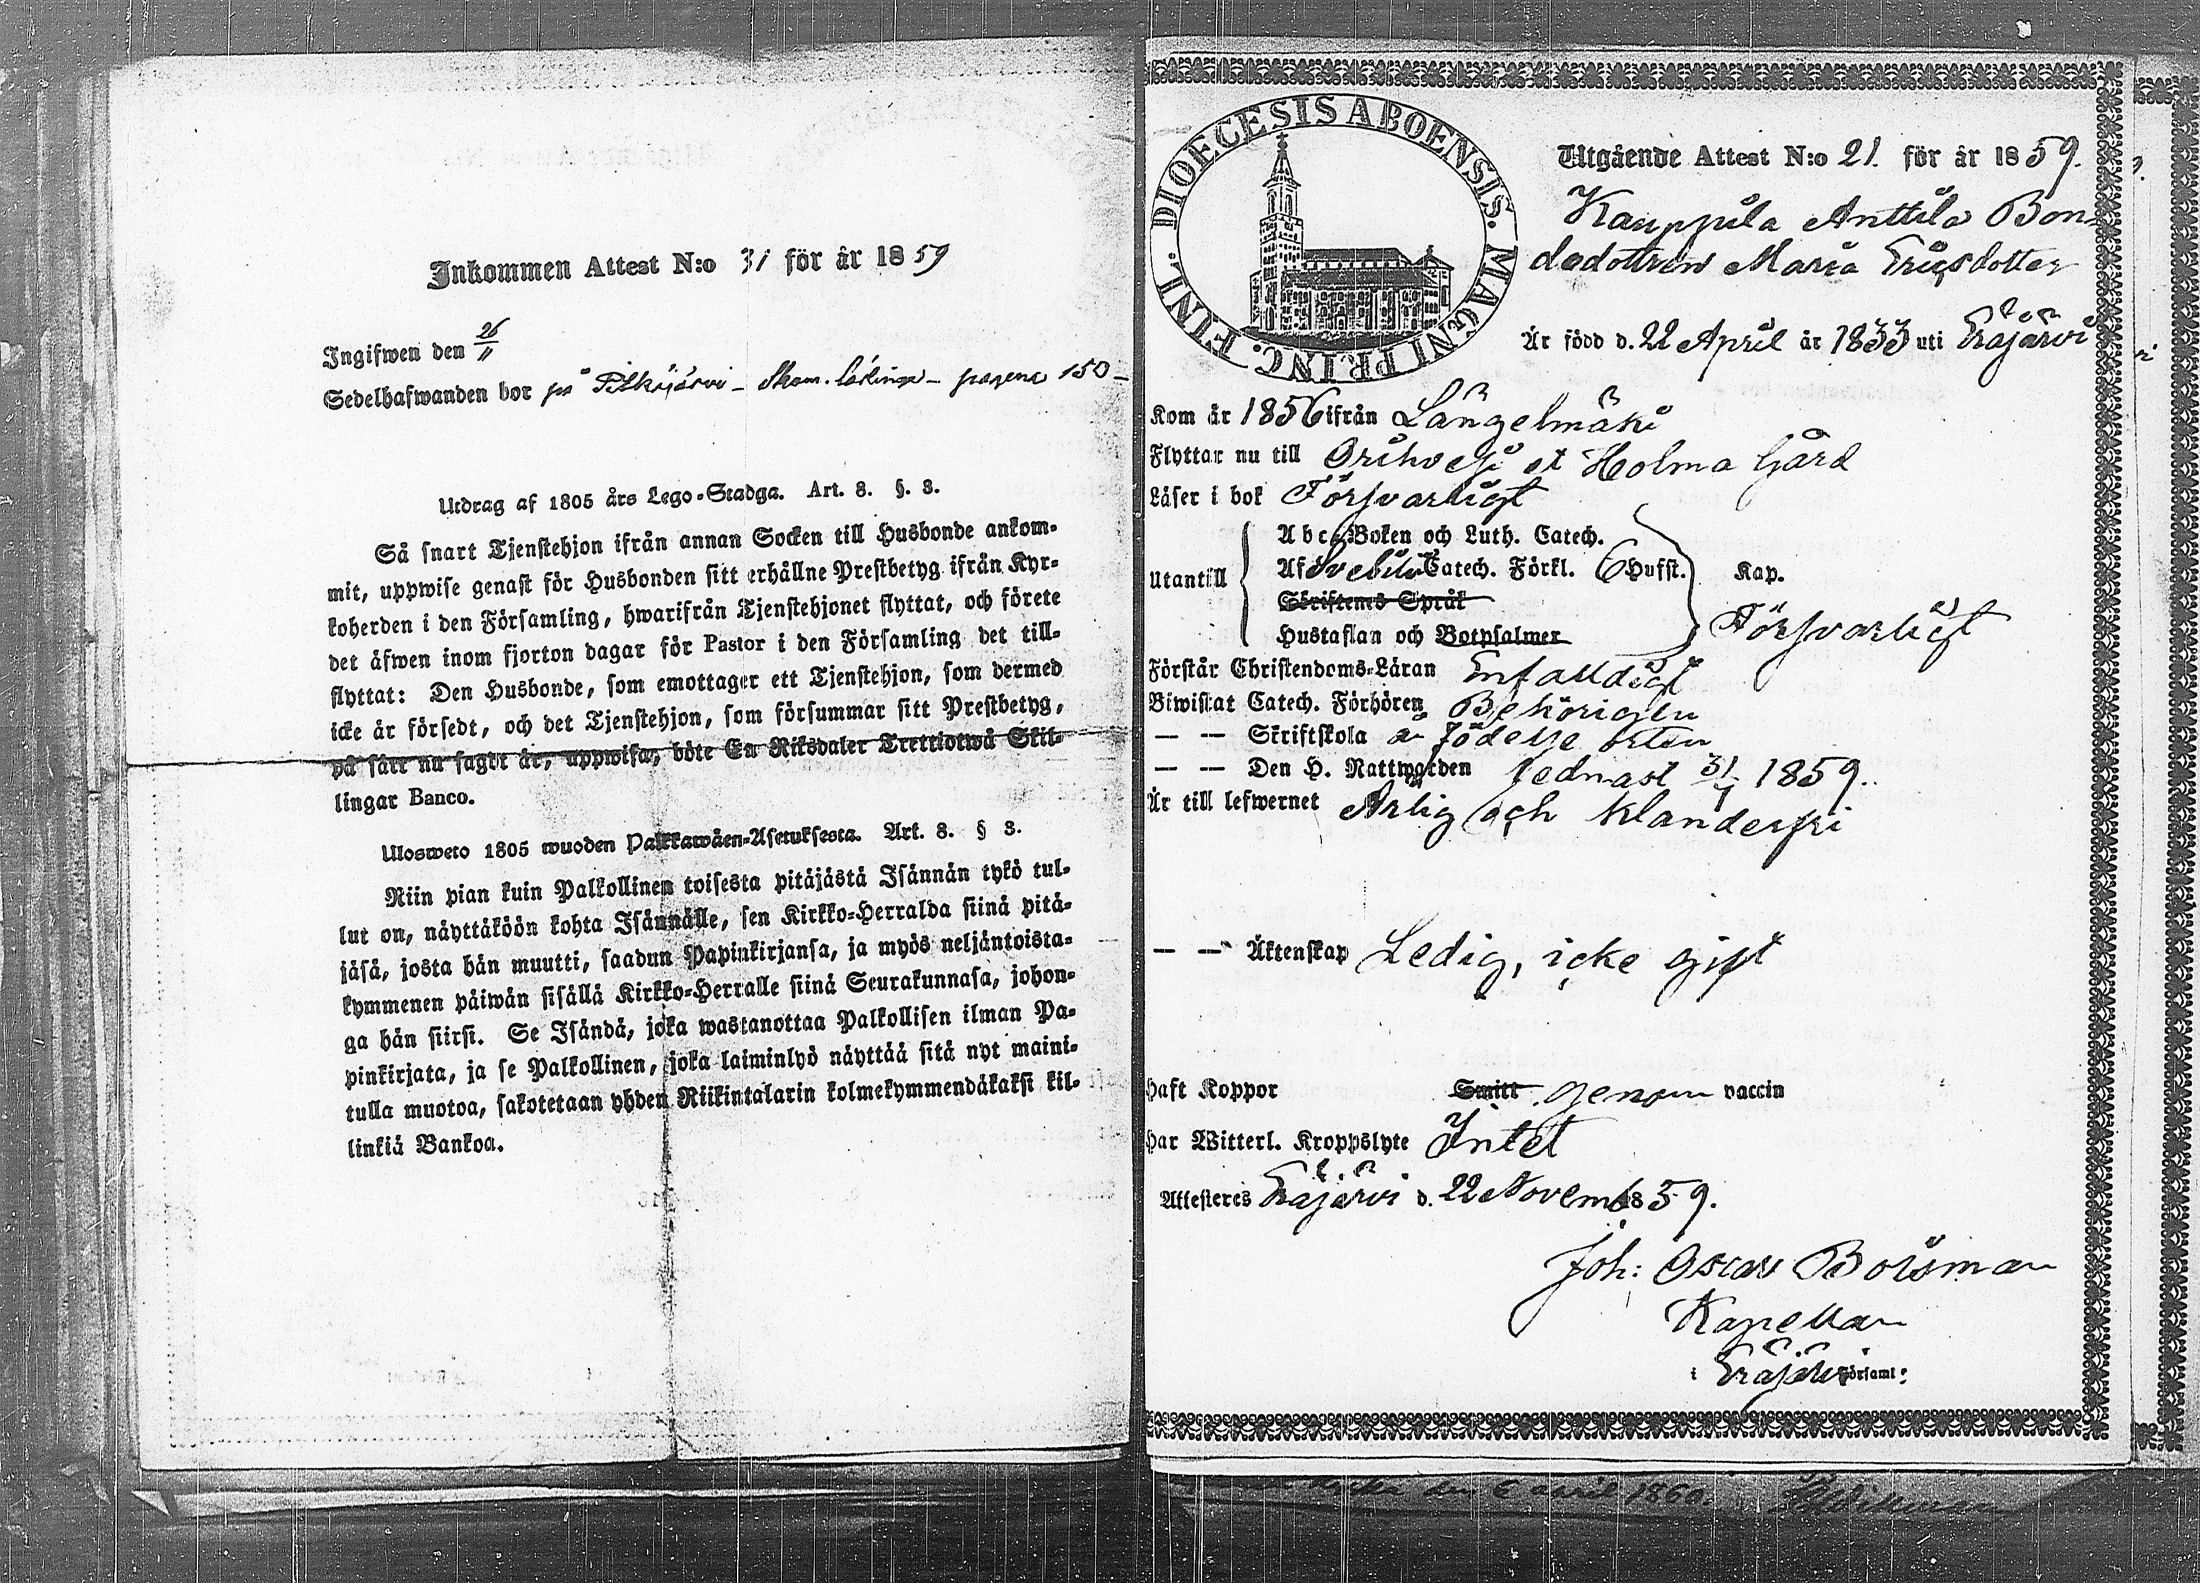 Inkommen Attest N:o 31 för år 1859
Ingifwen den 26/11
Sedelhafwanden bor på Pitkäjärvi - pagena 150 -
Utdrag af 1805 års Lego-Stadga. Art. 8. §. 3.
Så snart Tjenstehjon ifrån annan Socken till Husbonde ankom-
mit, uppwise genast för Husbonden sitt erhållne Prestbetyg ifrån Kyr-
koherden i den Församling, hwarifrån Tjenstehjonet flyttat, och förete
det äfwen inom fjorton dagar för Pastor i den Församling det till-
flyttat: Den Husbonde, som emottager ett Tjenstehjon, som dermed
icke är försedt, och det Tjenstehjon, som försummar sitt Prestbetyg,
på sätt nu sagdt är, uppwisa, böte En Riksdaler Trettiotwå Skil-
lingar Banco.
Ulosweto 1805 wuoden Palkkawäen-Asetuksesta. Art. 8. § 3.
Niin pian kuin Palkollinen toisesta pitäjästä Isännän tykö tul-
lut on, näyttäköön kohta Isännälle, sen Kirkko-Herralda siinä pitä-
jäsä, josta hän muutti, saadun Papinkirjansa, ja myös neljäntoista-
kymmenen päiwän sisällä Kirkko-Herralle siinä Seurakunnasa, johon-
ga hän siirsi. Se Isändä, joka wastanottaa Palkollisen ilman Pa-
pinkirjata, ja se Palkollinen, joka laiminlyö näyttää sitä nyt maini-
tulla muotoa, sakotetaan yhden Riikintalarin kolmekymmendäkaksi kil-
linkiä Bankoa.
DIOECESIS ABOENSIS. MAGNI PRINC. FINL.
Utgående Attest N:o 21. för år 1859.
Kauppila Anttila Bon-
dedottren Maria Ericsdotter
Är född d. 22 April år 1833 uti Eräjärvi
Kom år 1856 ifrån Längelmäki
Flyttar nu till Orihvesi et Holma Gård
Läser i bok Försvarligt
Utantill
Abc-Boken och Luth. Catech.
Af Svebilii Catech. Förkl. 6 Hufst. Kap.
Skriftenes Språk
Hustaflan och Botpsalmer
Försvarligt
Förstår Christendoms-Läran Enfaldigt
Biwistat Catech. Förhören Behörigen
— — Skriftskola å födelse orten
— — Den H. Nattwarden sednast 31/7 1859.
Är till lefwernet Ärlig och klanderfri
— — Äktenskap Ledig, icke gift
Haft Koppor Smitt genom vaccin
Har Witterl. Kroppslyte Intet
Attesteres Eräjärvi d. 22 Novemb 1859.
Joh: Oscar Boisman
Kapellan
i Eräjärvi Församl:
den 6 april 1860.